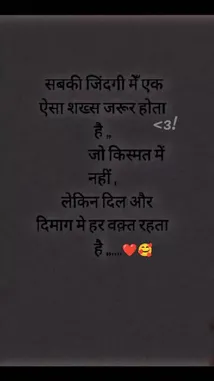 सबकी जिंदगी में एक
ऐसा शख्स जरूर होता
है ,,
<3!
जो किस्मत में
नहीं ,
लेकिन दिल और
दिमाग मे हर वक़्त रहता
है ,,.....❤️🥰